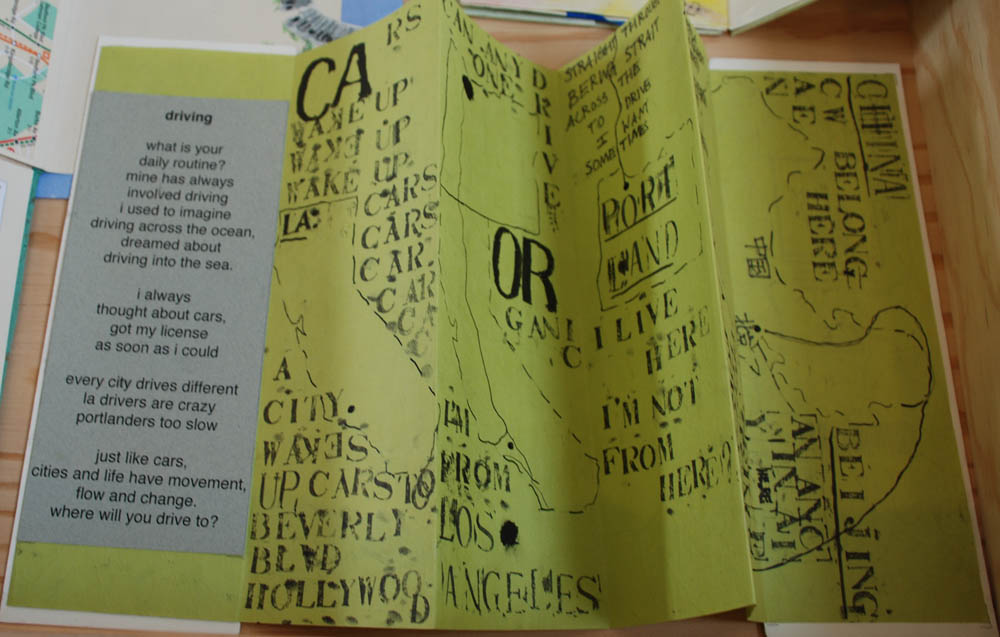 driving
what is your
daily routine?
mine has always
involved driving
i used to imagine
driving across the ocean,
dreamed about
driving into the sea.
i always
thought about cars,
got my license
as soon as i could
every city drives different
la drivers are crazy
portlanders too slow
just like cars,
cities and life have movement,
flow and change.
where will you drive to?
CARS
WAKE UP
WAKE UP
WAKE UP
LA
CARS
CARS
CAR
CAR
CA
C
A
CITY
WAVES
UP CARS TO
BEVERLY
BLVD
HOLLYWOOD
CAN ANY
ONE
DRIVE
OR
GANIC
I'M
FROM
LOS
ANGELES
STRAIGHT THROUGH
BERING STRAIT
ACROSS THE
TO DRIVE
I WANT
SOMETIMES
PORT
LAND
I LIVE
HERE
I'M NOT
FROM
HERE
CHINA
CAN
WE
BELONG
HERE
中國
BEIJING